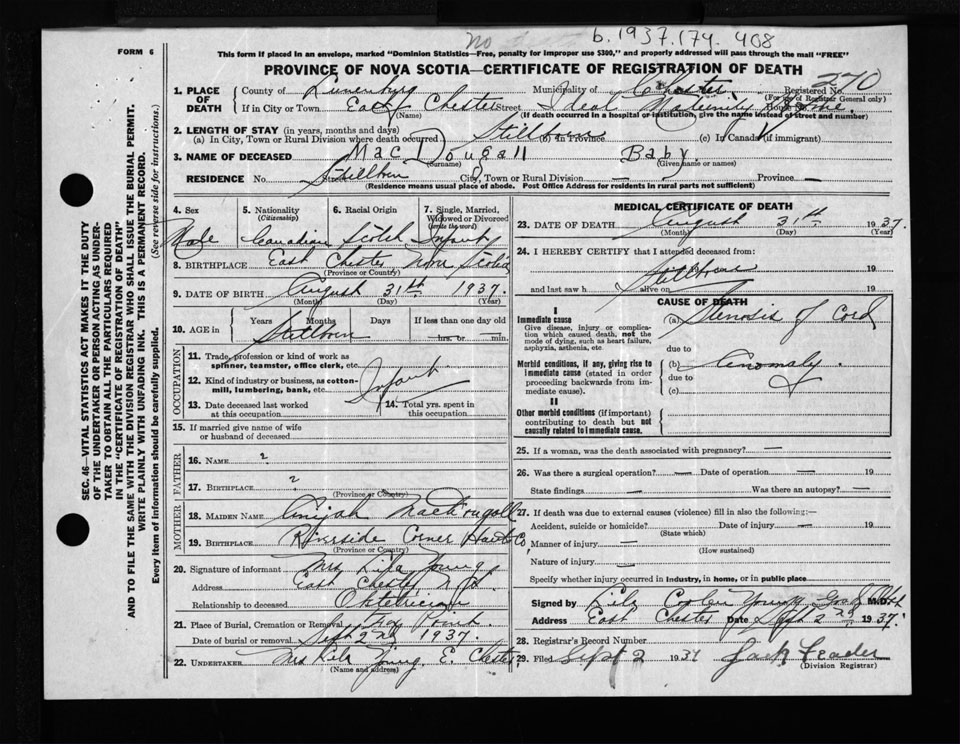 No b.1937.174.408
FORM 6
This form if placed in an envelope, marked "Dominion Statistics—Free, penalty for improper use $300," and properly addressed will pass through the mail "FREE"
PROVINCE OF NOVA SCOTIA—CERTIFICATE OF REGISTRATION OF DEATH
SEC. 46—VITAL STATISTICS ACT MAKES IT THE DUTY
OF THE UNDERTAKER OR PERSON ACTING AS UNDER-
TAKER TO OBTAIN ALL THE PARTICULARS REQUIRED
IN THE "CERTIFICATE OF REGISTRATION OF DEATH"
AND TO FILE THE SAME WITH THE DIVISION REGISTRAR WHO SHALL ISSUE THE BURIAL PERMIT.
WRITE PLAINLY WITH UNFADING INK. THIS IS A PERMANENT RECORD.
Every item of information should be carefully supplied. (See reverse side for instructions.)
1. PLACE OF DEATH County of Lunenburg Municipality of Chester Registered No. 270
(For use of Registrar General only)
If in City or Town East Chester Street Ideal Maternity Home
(Name) (If death occurred in a hospital or institution, give the name instead of street and number)
2. LENGTH OF STAY (in years, months and days)
(a) In City, Town or Rural Division where death occurred Stillborn (b) In Province (c) In Canada (if immigrant)
3. NAME OF DECEASED MacDougall Baby
(Surname) (Given name or names)
RESIDENCE No. Street Stillborn City, Town or Rural Division — Province —
(Residence means usual place of abode. Post Office Address for residents in rural parts not sufficient)
4. Sex 5. Nationality (Citizenship) 6. Racial Origin 7. Single, Married, Widowed or Divorced (write the word)
Male Canadian Scotch Infant
8. BIRTHPLACE East Chester Nova Scotia
(Province or Country)
9. DATE OF BIRTH August 31th 1937.
(Month) (Day) (Year)
10. AGE in Years Months Days If less than one day old
Stillborn hrs. or min.
OCCUPATION
11. Trade, profession or kind of work as
spinner, teamster, office clerk, etc.
12. Kind of industry or business, as cotton-
mill, lumbering, bank, etc. Infant
13. Date deceased last worked
at this occupation
14. Total yrs. spent in
this occupation
15. If married give name of wife
or husband of deceased
FATHER
16. NAME ?
17. BIRTHPLACE ?
(Province or Country)
MOTHER
18. MAIDEN NAME MacDougall
19. BIRTHPLACE Riverside Corner Hants Co,
(Province or Country)
20. Signature of informant Mrs Lila Young
Address East Chester N.S.
Relationship to deceased Obstetrician
21. Place of Burial, Cremation or Removal Fox Pond
Date of burial or removal Sept 2nd 1937.
22. UNDERTAKER Mrs Lila Young E. Chester
(Name and address)
MEDICAL CERTIFICATE OF DEATH
23. DATE OF DEATH August 31th 1937.
(Month) (Day) (Year)
24. I HEREBY CERTIFY that I attended deceased from:
Stillborn 19
and last saw h alive on 19
CAUSE OF DEATH
I
Immediate cause (a) Stenosis of Cord
Give disease, injury or complica-
tion which caused death, not the
mode of dying, such as heart failure,
asphyxia, asthenia, etc.
due to
Morbid conditions, if any, giving rise to
immediate cause (stated in order
proceeding backwards from im-
mediate cause).
(b) Anomaly.
due to
(c)
II
Other morbid conditions (if important)
contributing to death but not
causally related to immediate cause.
25. If a woman, was the death associated with pregnancy? —
26. Was there a surgical operation? — Date of operation — 19
State findings — Was there an autopsy? —
27. If death was due to external causes (violence) fill in also the following:—
Accident, suicide or homicide? Date of injury — 19
(State which)
Manner of injury —
(How sustained)
Nature of injury —
Specify whether injury occurred in industry, in home, or in public place
Signed by Lila Coolen Young M.D.
Address East Chester Date Sept 2nd 1937.
28. Registrar's Record Number
29. Filed Sept 2 1937 Jack Feader
(Division Registrar)